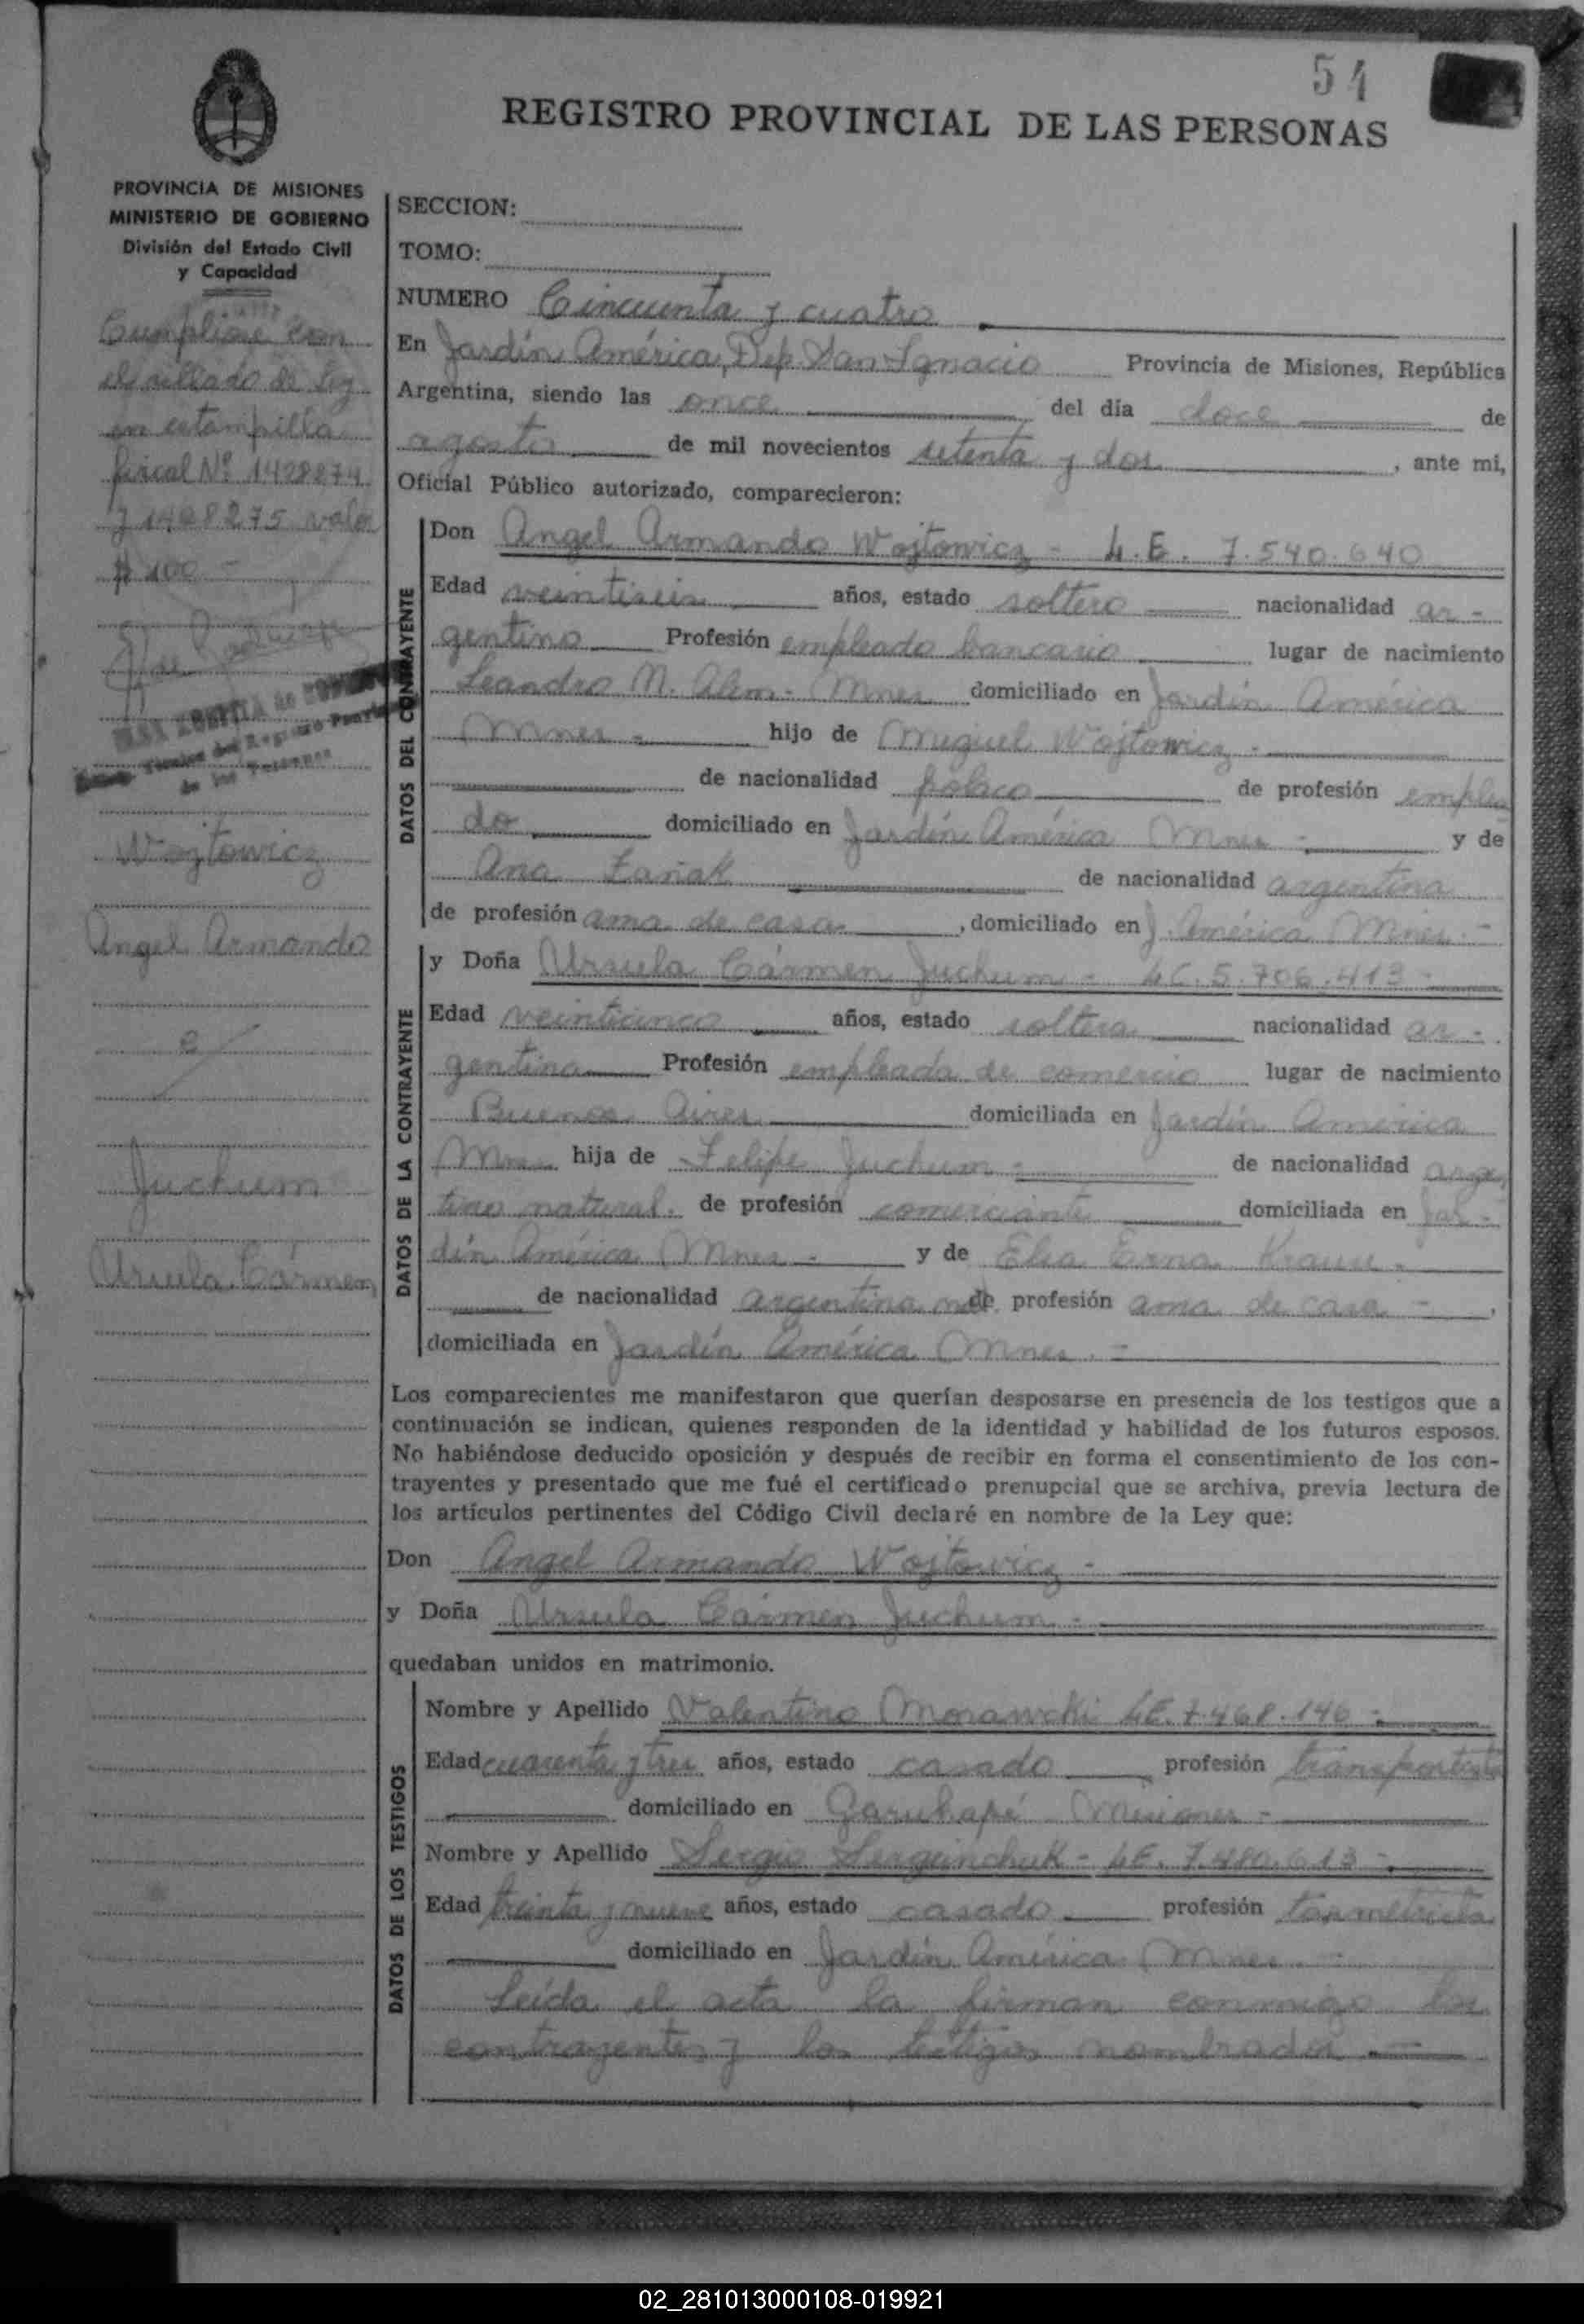 54
REGISTRO PROVINCIAL DE LAS PERSONAS
PROVINCIA DE MISIONES
MINISTERIO DE GOBIERNO
División del Estado Civil
y Capacidad
Cumplióse con
el sellado de ley
en estampilla
fiscal Nº 1428274
y 1428275 valor
$ 100 -
de las Personas
Wojtowicz
Angel Armando
e/
Juchum
Ursula Cármen
SECCION:
TOMO:
NUMERO Cincuenta y cuatro
En Jardín América, Dep. San Ignacio Provincia de Misiones, República
Argentina, siendo las once del día doce de
agosto de mil novecientos setenta y dos, ante mi,
Oficial Público autorizado, comparecieron:
DATOS DEL CONTRAYENTE
Don Angel Armando Wojtowicz - L.E. 7.540.640
Edad veintiseis años, estado soltero nacionalidad ar-
gentino Profesión empleado bancario lugar de nacimiento
Leandro N. Alem - Mnes domiciliado en Jardín América
Mnes - hijo de Miguel Wojtowicz -
de nacionalidad polaco de profesión emplea
do domiciliado en Jardín América Mnes - y de
Ana Zañak de nacionalidad argentina
de profesión ama de casa, domiciliado en J. América Mnes. -
DATOS DE LA CONTRAYENTE
y Doña Ursula Cármen Juchum - L.C. 5.706.413 -
Edad veinticinco años, estado soltera nacionalidad ar-
gentina Profesión empleada de comercio lugar de nacimiento
Buenos Aires domiciliada en Jardín América
Mnes hija de Felipe Juchum - de nacionalidad argen
tino natural. de profesión comerciante domiciliada en Jar-
dín América Mnes - y de Elsa Erna Krause -
de nacionalidad argentina de profesión ama de casa -,
domiciliada en Jardín América Mnes. -
Los comparecientes me manifestaron que querían desposarse en presencia de los testigos que a
continuación se indican, quienes responden de la identidad y habilidad de los futuros esposos.
No habiéndose deducido oposición y después de recibir en forma el consentimiento de los con-
trayentes y presentado que me fué el certificado prenupcial que se archiva, previa lectura de
los artículos pertinentes del Código Civil declaré en nombre de la Ley que:
Don Angel Armando Wojtowicz -
y Doña Ursula Cármen Juchum -
quedaban unidos en matrimonio.
DATOS DE LOS TESTIGOS
Nombre y Apellido Valentino Morawski LE. 7.468.146 -
Edad cuarenta y tres años, estado casado profesión transportista
domiciliado en Garuhapé Misiones -
Nombre y Apellido Sergio Serguinchuk - LE. 7.480.613 -
Edad treinta y nueve años, estado casado profesión
domiciliado en Jardín América Mnes. -
Leída el acta la firman conmigo los
contrayentes y los testigos nombrados. -
02_281013000108-019921